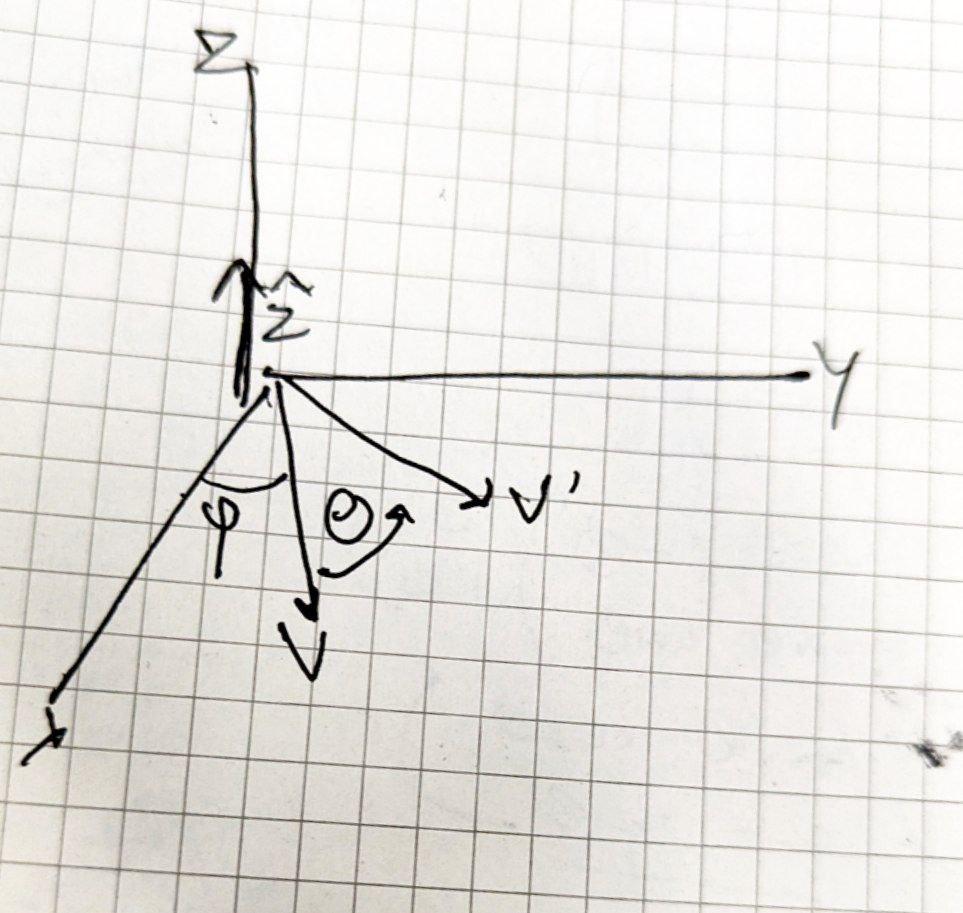 Z
ẑ
Y
V'
φ
θ
V
X